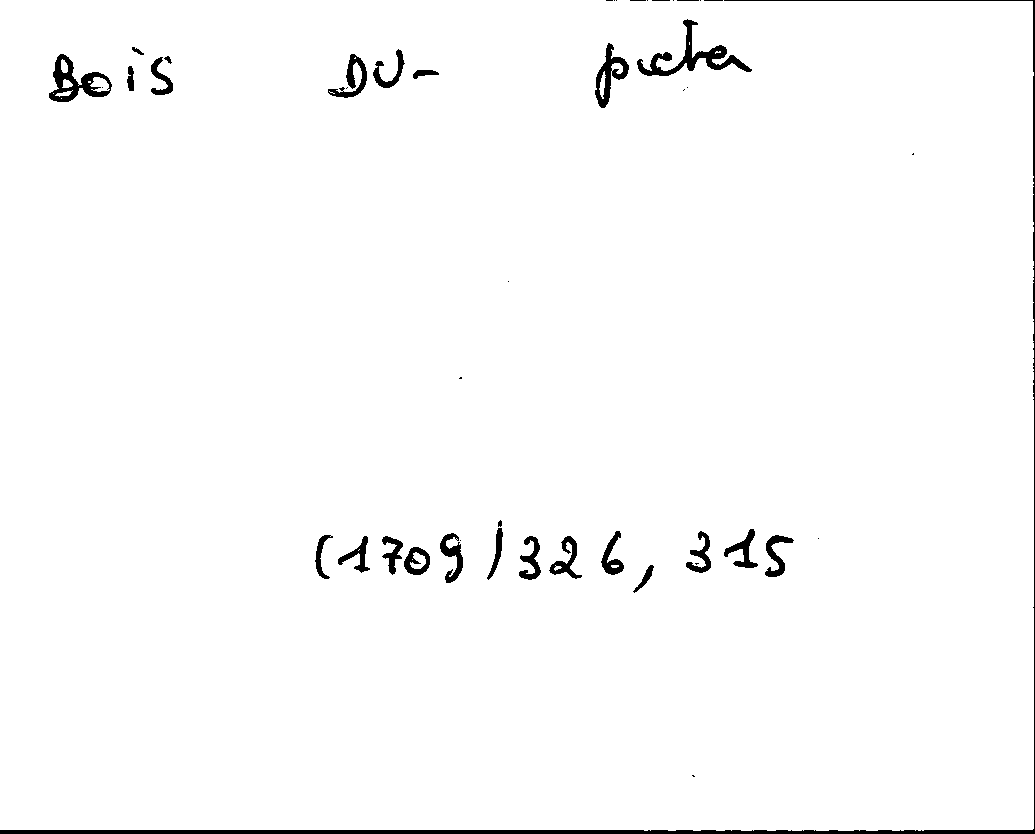 BOIS DU-
(1709) 326, 315